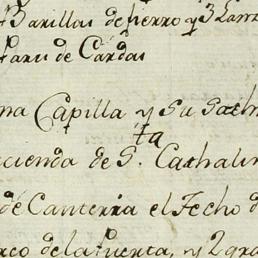 Barillas de fierro q̃ 3 Lanz
Paru de Cardas
na Capilla y Su Sach
cienda de S.ta Cathalin
de Canteria el Fecho d
rco de la Puerta, y 2 gra